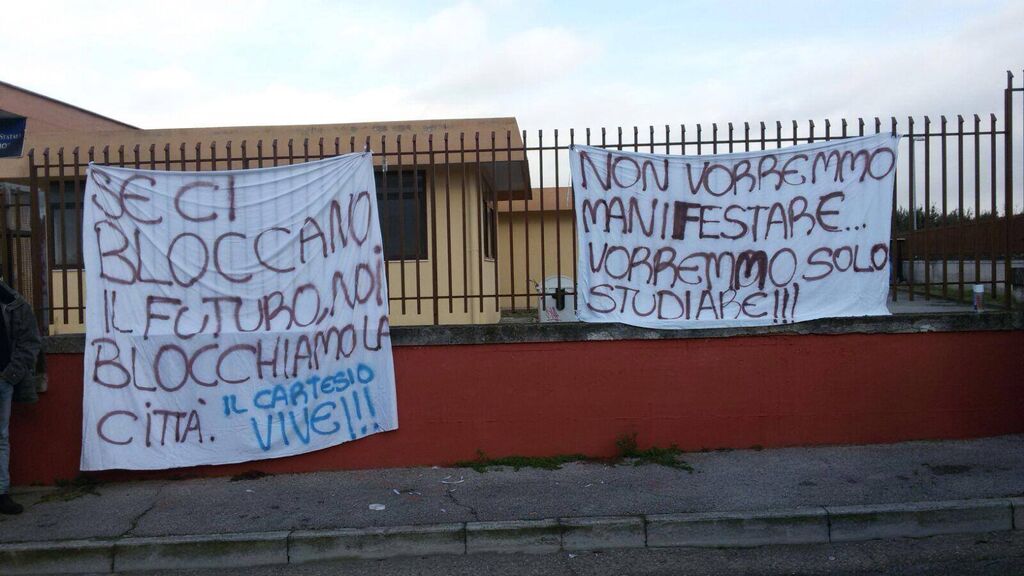 SE CI
BLOCCANO
IL FUTURO, NOI
BLOCCHIAMO LA
CITTÀ. IL CARTESIO
VIVE!!!
NON VORREMMO
MANIFESTARE...
VORREMMO SOLO
STUDIARE!!!